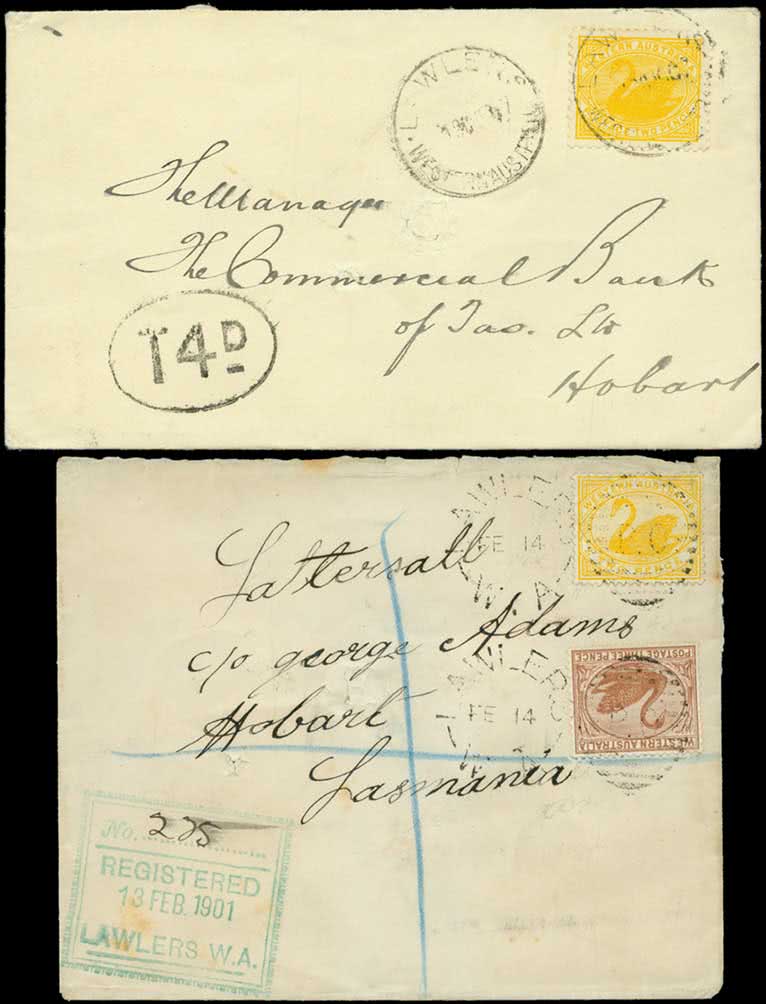 LAWLERS
WESTERN AUSTRALIA
WESTERN AUSTRALIA
POSTAGE TWO PENCE
The Manager
The Commercial Bank
of Tas. Ld
Hobart
T4D
LAWLERS
FE 14
W A
WESTERN AUSTRALIA
TWO PENCE
Tattersall
c/o george Adams
Hobart
Tasmania
LAWLERS
FE 14
W A
POSTAGE THREE PENCE
WESTERN AUSTRALIA
No. 225
REGISTERED
13 FEB. 1901
LAWLERS W.A.